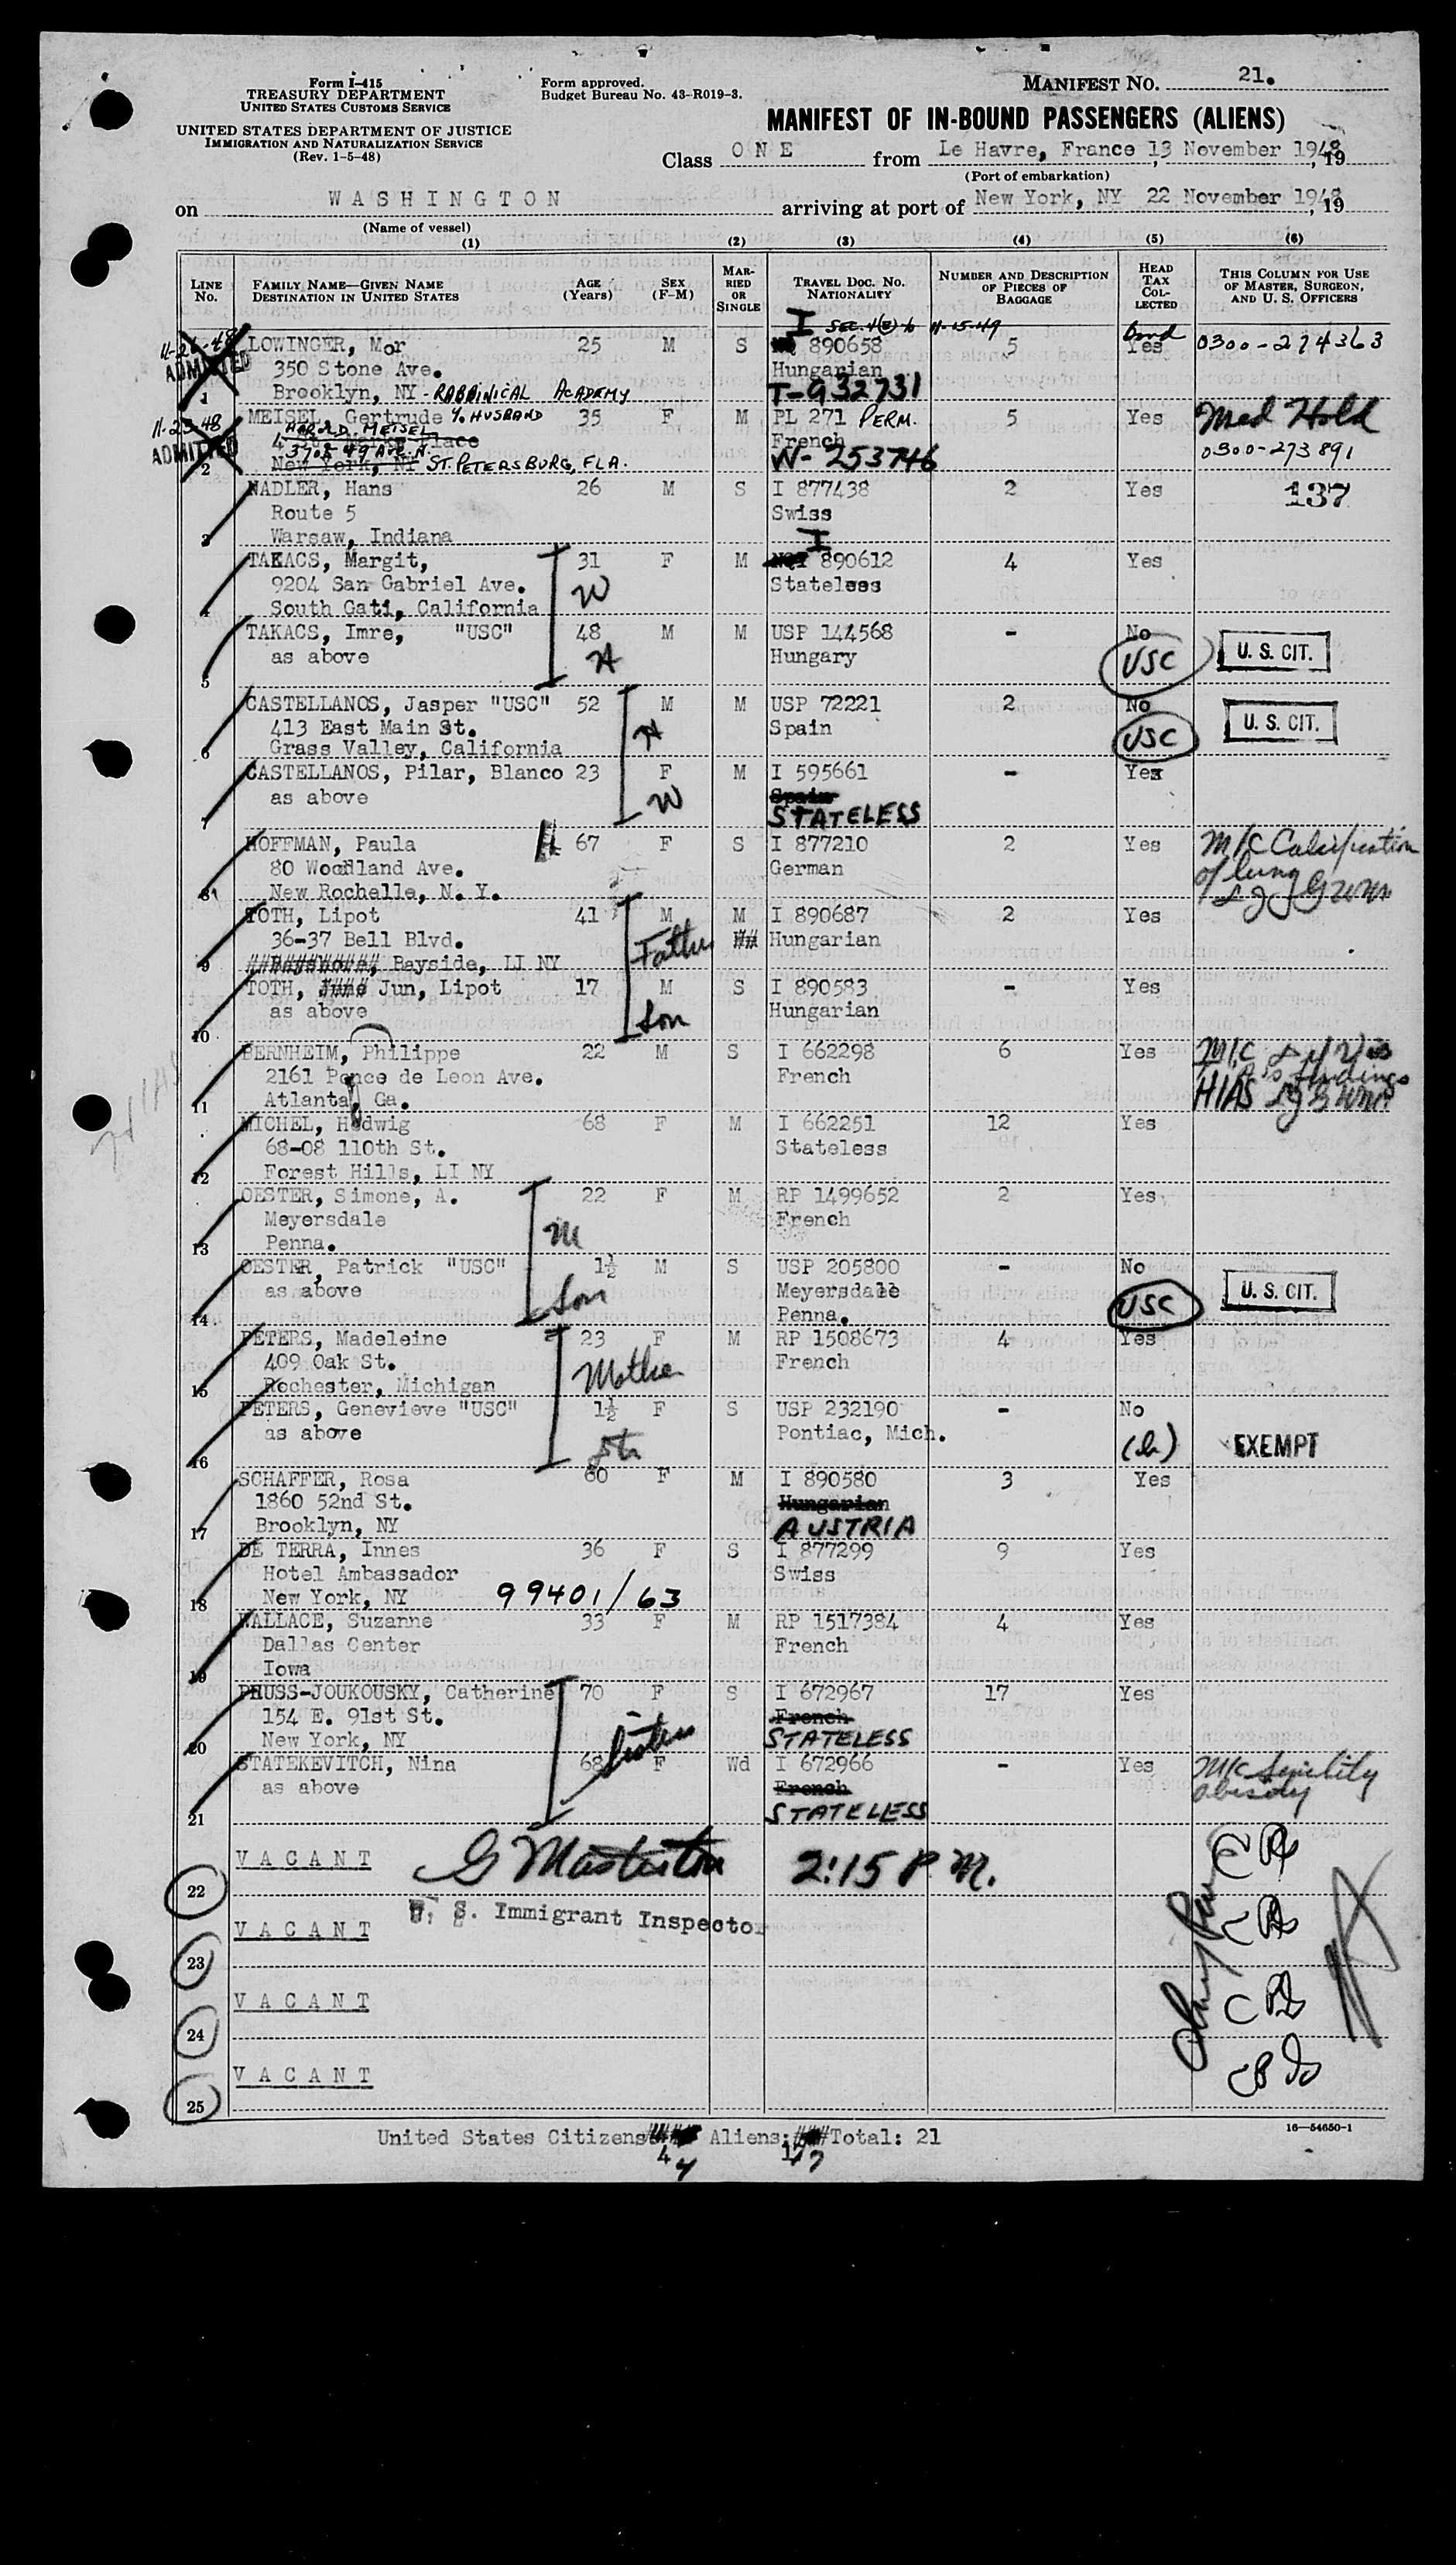 Form I-415
TREASURY DEPARTMENT
UNITED STATES CUSTOMS SERVICE
UNITED STATES DEPARTMENT OF JUSTICE
IMMIGRATION AND NATURALIZATION SERVICE
(Rev. 1-5-48)
Form approved.
Budget Bureau No. 43-R019-3.
MANIFEST NO. 21.
MANIFEST OF IN-BOUND PASSENGERS (ALIENS)
Class ONE from Le Havre, France, 13 November 1948, 19
(Port of embarkation)
on WASHINGTON arriving at port of New York, NY 22 November 1948, 19
(Name of vessel)
(1) (2) (3) (4) (5) (6)
LINE No. FAMILY NAME—GIVEN NAME DESTINATION IN UNITED STATES AGE (Years) SEX (F-M) MARRIED OR SINGLE TRAVEL DOC. NO. NATIONALITY NUMBER AND DESCRIPTION OF PIECES OF BAGGAGE HEAD TAX COLLECTED THIS COLUMN FOR USE OF MASTER, SURGEON, AND U. S. OFFICERS
I SEC. 4(E) to 11-15-49 Bond
ADMITTED LOWINGER, Mor 25 M S 890658 5 Yes 0300-274363
350 Stone Ave. Hungarian
1 Brooklyn, NY - RABBINICAL ACADEMY T-932731
11-23-48 MEISEL, Gertrude % HUSBAND 35 F M PL 271 PERM. 5 Yes Med Hold
ADMITTED HAROLD MEISEL French
3705 49 AVE. N.
2 New York, NY ST. PETERSBURG, FLA. W-253746 0300-273891
NADLER, Hans 26 M S I 877438 2 Yes 137
Route 5 Swiss
3 Warsaw, Indiana
TAKACS, Margit, 31 F M I 890612 4 Yes
9204 San Gabriel Ave. W Stateless
4 South Gati, California
TAKACS, Imre, "USC" 48 M M USP 144568 - No U. S. CIT.
as above H Hungary USC
5
CASTELLANOS, Jasper "USC" 52 M M USP 72221 2 No U. S. CIT.
413 East Main St. H Spain USC
6 Grass Valley, California
CASTELLANOS, Pilar, Blanco 23 F M I 595661 - Yes
as above W Spain
7 STATELESS
HOFFMAN, Paula 67 F S I 877210 2 Yes M/C Calcification
80 Woodland Ave. German of lung
8 New Rochelle, N. Y.
TOTH, Lipot 41 M M I 890687 2 Yes
36-37 Bell Blvd. Father Hungarian
9 Bayside, LI NY
TOTH, Jun, Lipot 17 M S I 890583 - Yes
as above Son Hungarian
10
BERNHEIM, Philippe 22 M S I 662298 6 Yes M/C
2161 Ponce de Leon Ave. French findings
11 Atlanta, Ga. HIAS
MICHEL, Hedwig 68 F M I 662251 12 Yes
68-08 110th St. Stateless
12 Forest Hills, LI NY
OESTER, Simone, A. 22 F M RP 1499652 2 Yes
Meyersdale M French
13 Penna.
OESTER, Patrick "USC" 1½ M S USP 205800 - No U. S. CIT.
as above Son Meyersdale USC
14 Penna.
PETERS, Madeleine 23 F M RP 1508673 4 Yes
409 Oak St. Mother French
15 Rochester, Michigan
PETERS, Genevieve "USC" 1½ F S USP 232190 - No
as above Pontiac, Mich. EXEMPT
16
SCHAFFER, Rosa 60 F M I 890580 3 Yes
1860 52nd St. Hungarian
17 Brooklyn, NY AUSTRIA
DE TERRA, Innes 36 F S I 877299 9 Yes
Hotel Ambassador Swiss
18 New York, NY 99401/63
WALLACE, Suzanne 33 F M RP 1517384 4 Yes
Dallas Center French
19 Iowa
PRUSS-JOUKOUSKY, Catherine 70 F S I 672967 17 Yes
154 E. 91st St. Sisters French
20 New York, NY STATELESS
STATEKEVITCH, Nina 68 F Wd I 672966 - Yes M/C Senility
as above French obesity
21 STATELESS
VACANT G Masterton 2:15 P M.
22
U. S. Immigrant Inspector
VACANT
23
VACANT
24
VACANT
25
United States Citizens: Aliens: Total: 21
4 17
16—54650-1